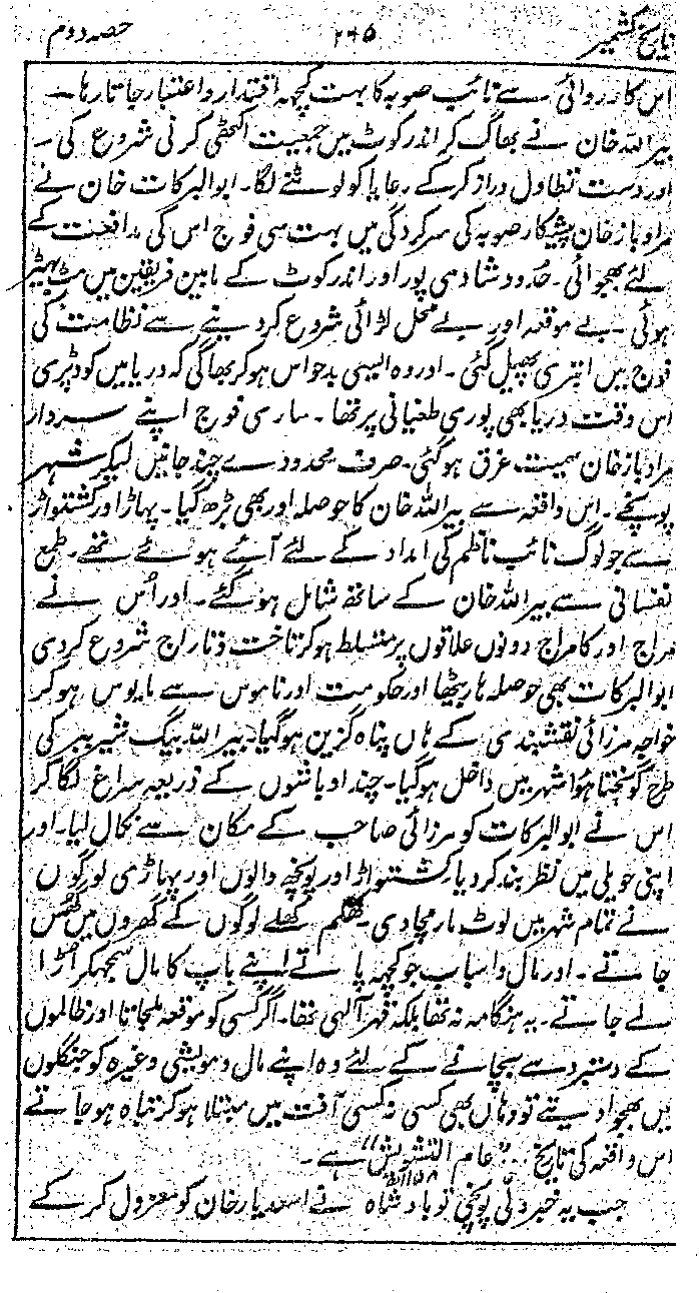 تاریخ کشمیر
۲۶۵
حصہ دوم
اس کارروائی سے نائب صوبہ کا بہت کچھہ اقتدار و اعتبار جاتا رہا ۔
بیراللہ خان نے بھاگ کر اندر کوٹ میں جمعیت اکٹھی کرنی شروع کی ۔
اور دست تطاول دراز کر کے رعایا کو لوٹنے لگا ۔ ابوالبرکات خان نے
مراد باز خان پیشکار صوبہ کی سرکردگی میں بہت سی فوج اس کی مدافعت کے
لئے بھجوائی ۔ حدود شادی پور اور اندر کوٹ کے مابین فریقین میں مٹ بھیڑ
ہوئی ۔ بے موقعہ اور بے محل لڑائی شروع کر دینے سے نظامت کی
فوج میں ابتری پھیل گئی ۔ اور وہ ایسی بدحواس ہو کر بھاگی کہ دریا میں کود پڑی
اس وقت دریا بھی پوری طغیانی پر تھا ۔ ساری فوج اپنے سردار
مراد باز خان سمیت غرق ہو گئی ۔ صرف محدودے چند جانیں لیکر شہر
پونچے ۔ اس واقعہ سے بیراللہ خان کا حوصلہ اور بھی بڑھ گیا ۔ پہاڑ اور کشتواڑ
سے جو لوگ نائب ناظم کی امداد کے لئے آئے ہوئے تھے ۔ طمع
نفسانی سے بیراللہ خان کے ساتھ شامل ہو گئے ۔ اور اُس نے
مراج اور کامراج دونوں علاقوں پر متسلط ہو کر تاخت و تاراج شروع کر دی
ابوالبرکات بھی حوصلہ ہار بیٹھا اور حکومت اور ناموس سے مایوس ہو کر
خواجہ مرزائی نقشبندی کے ہاں پناہ گزین ہو گیا ۔ بیراللہ بیگ شیر ببر کی
طرح گونجتا ہوا شہر میں داخل ہو گیا ۔ چند اوباشوں کے ذریعہ سراغ لگا کر
اس نے ابوالبرکات کو مرزائی صاحب کے مکان سے نکال لیا ۔ اور
اپنی حویلی میں نظر بند کر دیا ۔ کشتواڑ اور پونچھ والوں اور پہاڑی لوگوں
نے تمام شہر میں لوٹ مار مچا دی ۔ کھلم کھلے لوگوں کے گھروں میں گھس
جاتے ۔ اور مال و اسباب جو کچھہ پاتے اپنے باپ کا مال سمجھکر اُڑا
لے جاتے ۔ یہ ہنگامہ نہ تھا بلکہ قہر آلہی تھا ۔ اگر کسی کو موقعہ ملجاتا اور ظالموں
کے دستبرد سے بچانے کے لئے وہ اپنے مال و مویشی وغیرہ کو جنگلوں
میں بھجوا دیتے تو وہاں بھی کسی نہ کسی آفت میں مبتلا ہو کر تباہ ہو جاتے
اس واقعہ کی تاریخ "عام التشویش" ہے ۔
جب یہ خبر دلّی پونچی تو بادشاہ نے اسد یار خان کو معزول کر کے